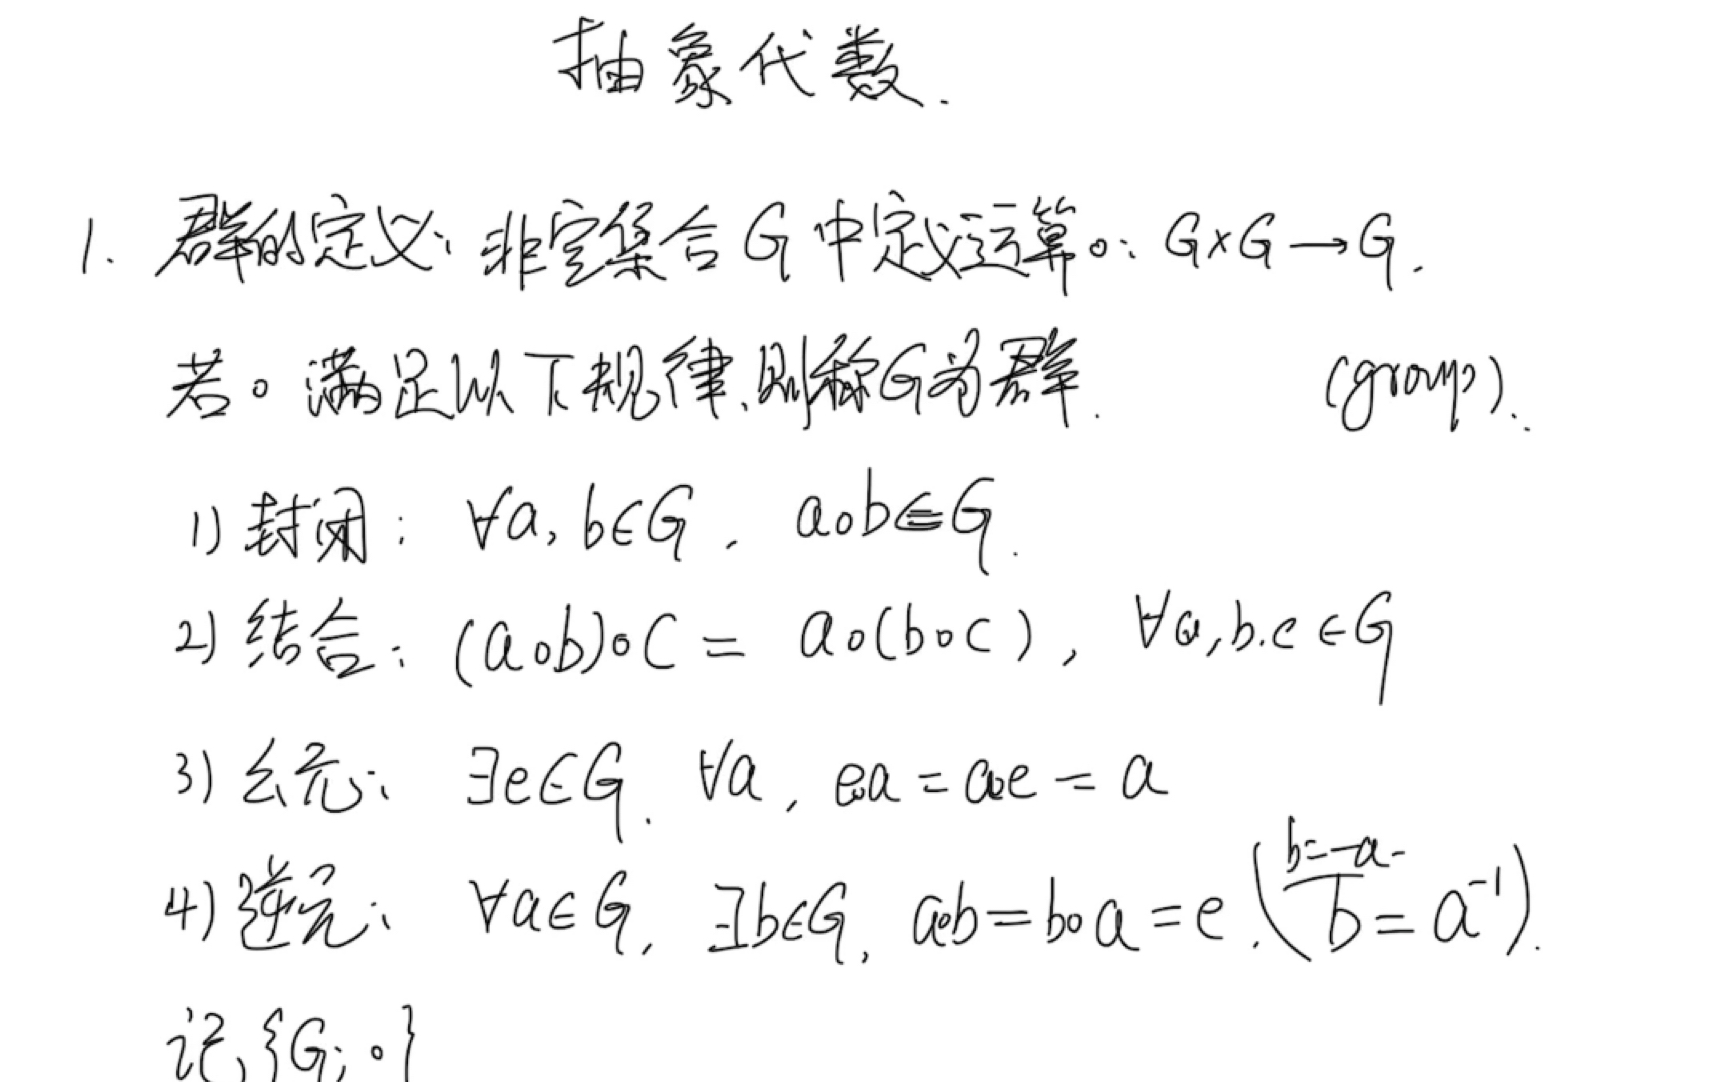 抽象代数.
1. 群的定义: 非空集合 G 中定义运算∘: G×G→G.
若∘满足以下规律, 则称G为群. (group).
1) 封闭: ∀a, b∈G. a∘b∈G.
2) 结合: (a∘b)∘c = a∘(b∘c), ∀a,b.c∈G
3) 幺元: ∃e∈G. ∀a, e∘a = a∘e = a
b=-a-
4) 逆元: ∀a∈G, ∃b∈G, a∘b=b∘a=e. (b=a⁻¹).
记, {G; ∘}